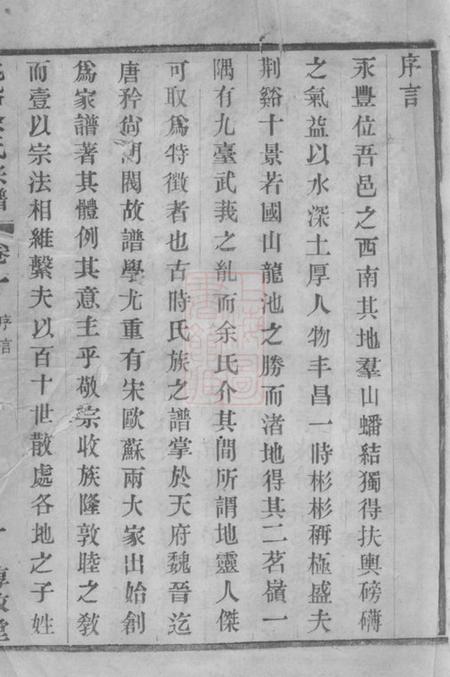 序言
永豐位吾邑之西南其地羣山蟠結獨得扶輿磅礴
之氣益以水深土厚人物丰昌一時彬彬稱極盛夫
荆谿十景若國山龍池之勝而渚地得其二茗嶺一
隅有九臺武莪之亂而余氏介其間所謂地靈人傑
可取爲特徴者也古時氏族之譜掌於天府魏晉迄
唐矜尙閥故譜學尤重有宋歐蘇兩大家出始創
爲家譜著其體例其意主乎敬宗收族隆敦睦之敎
而壹以宗法相維繫夫以百十世散處各地之子姓
氏宗譜 卷一 序言 一